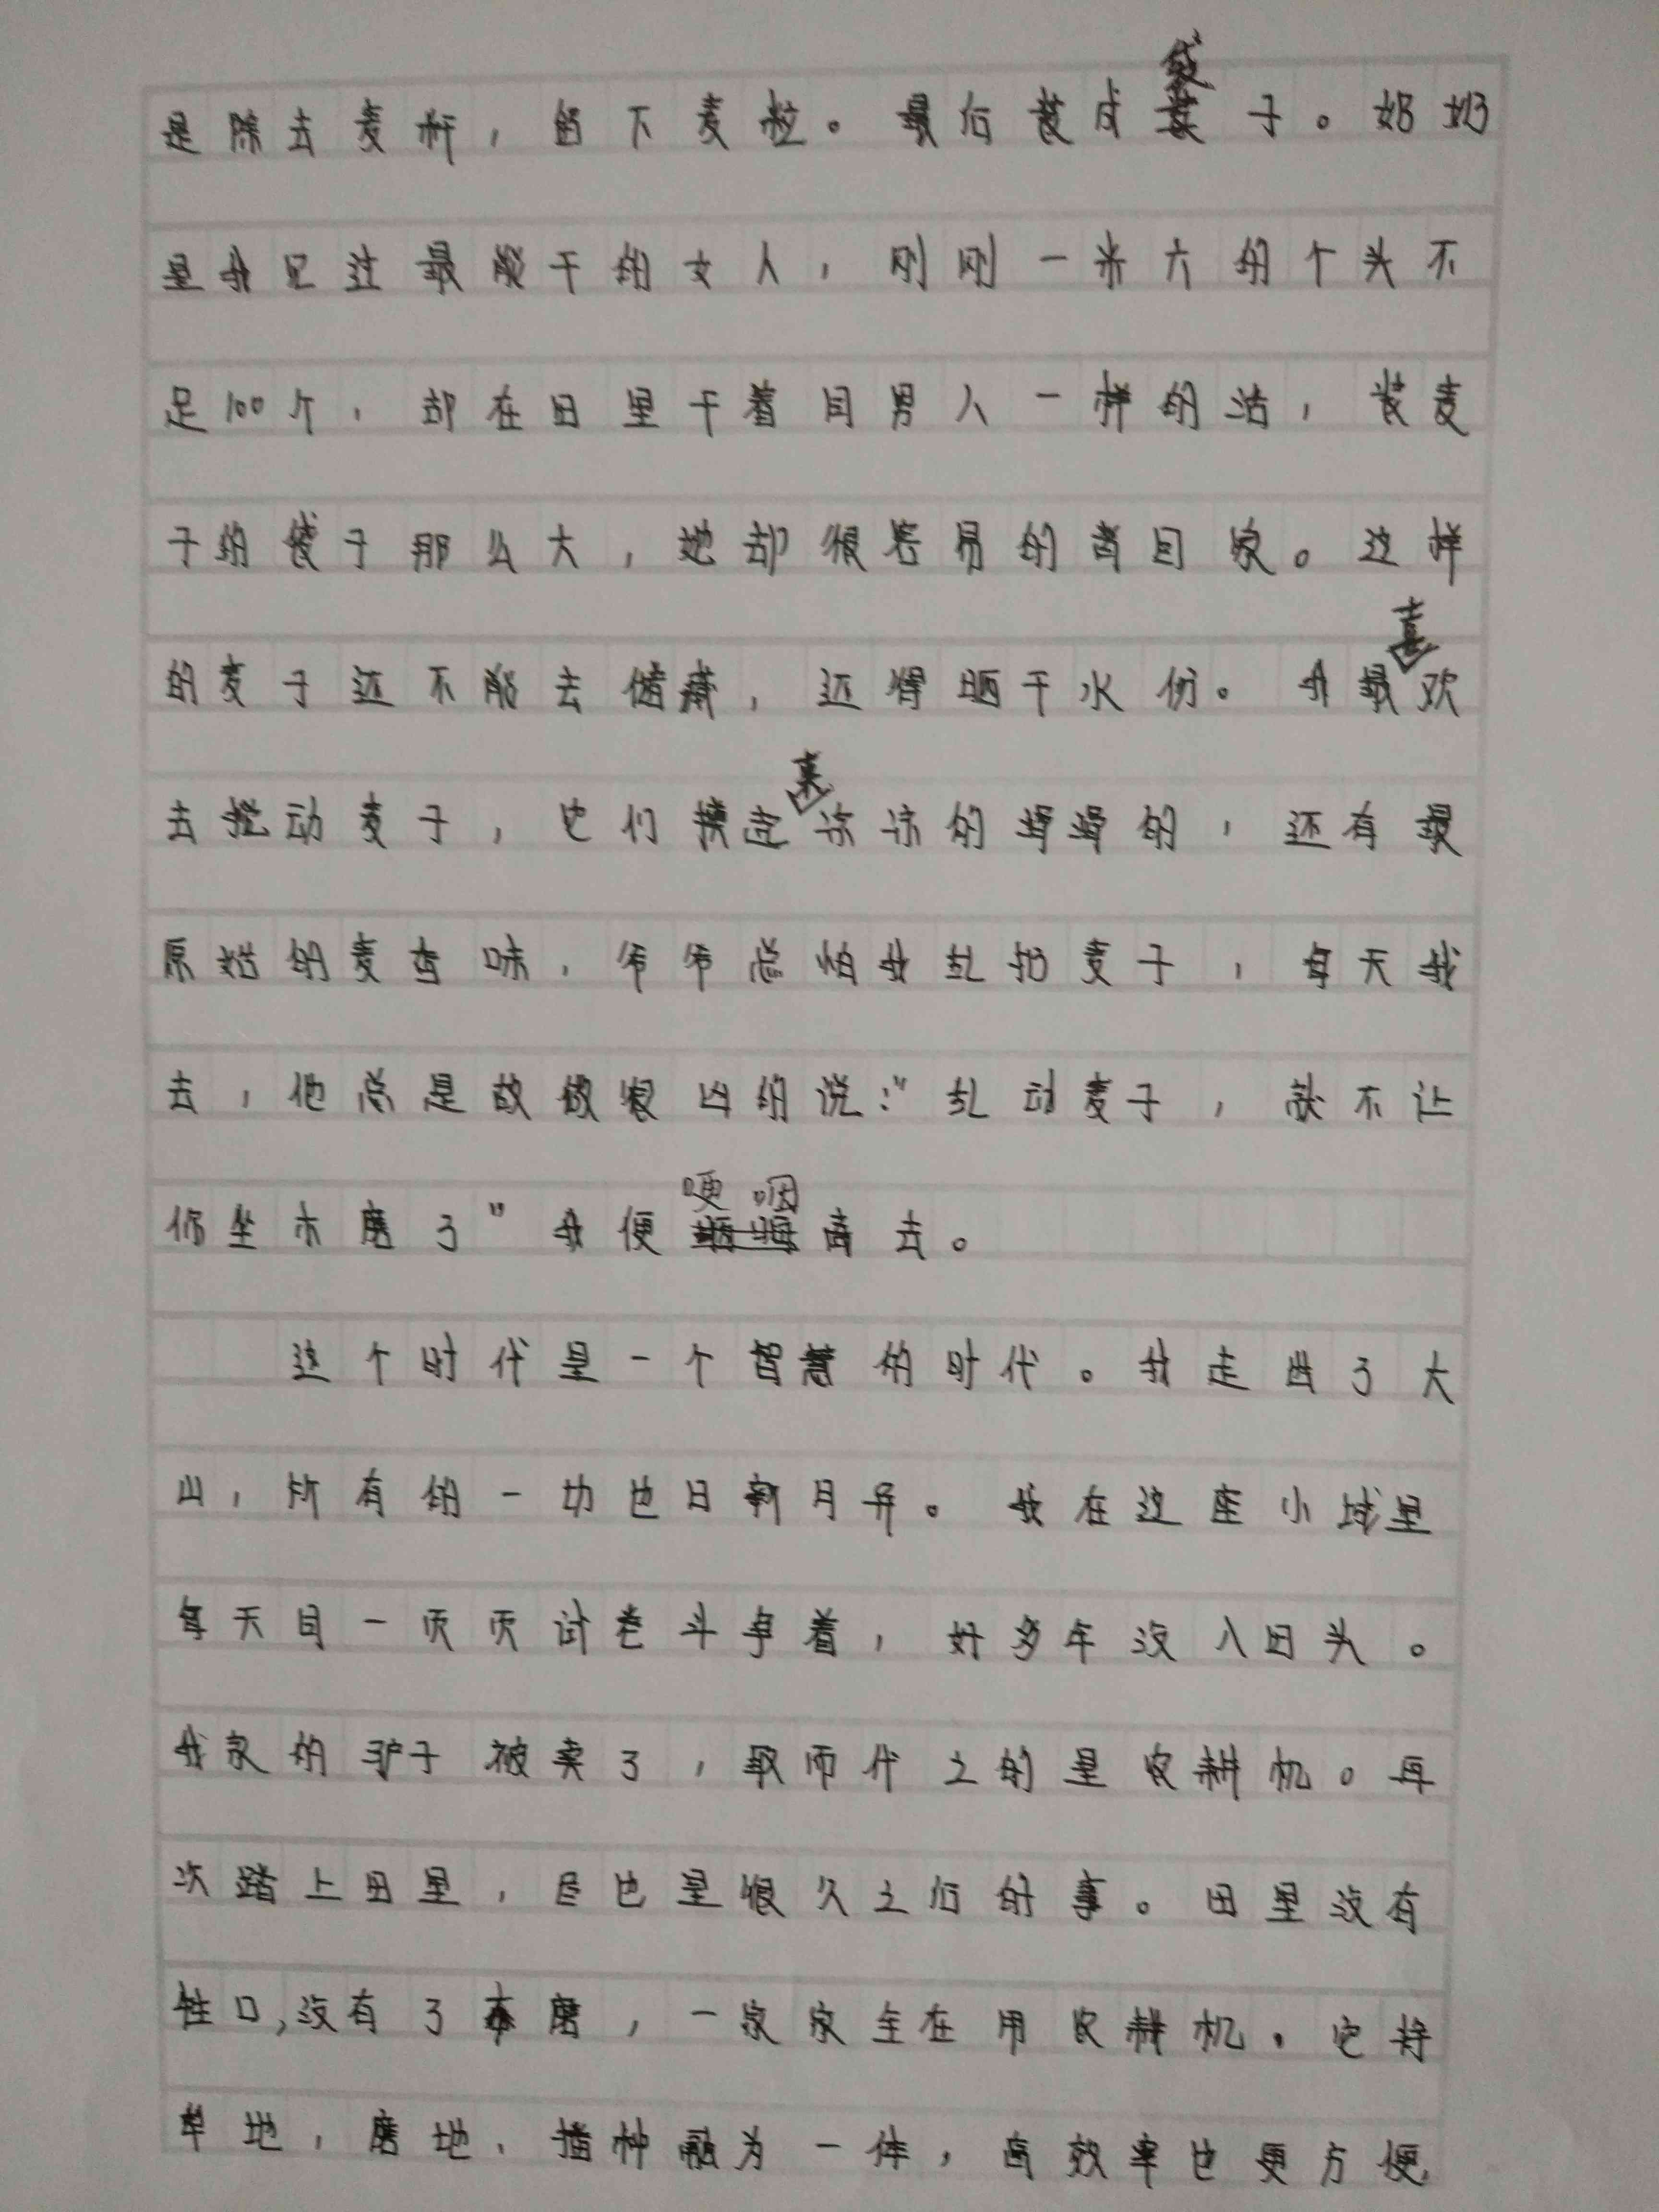 是除去麦秆，留下麦粒。最后装成袋子。奶奶
是我见过最能干的女人，刚刚一米六的个头不
足100斤，却在田里干着同男人一样的活，装麦
子的袋子那么大，她却很容易的背回家。这样
的麦子还不能去储藏，还得晒干水份。我最喜欢
去搅动麦子，它们摸起来凉凉的滑滑的，还有最
原始的麦香味，爷爷总怕我乱扔麦子，每天我
去，他总是故做很凶的说："乱动麦子，就不让
你坐木磨了"我便哽咽离去。
这个时代是一个智慧的时代。我走出了大
山，所有的一切也日新月异。我在这座小城里
每天同一页页试卷斗争着，好多年没入田头。
我家的驴子被卖了，取而代之的是农耕机。再
次踏上田里，已也是很久之后的事。田里没有
牲口,没有了木磨，一家家全在用农耕机，它将
犁地，磨地，播种融为一体，高效率也更方便，